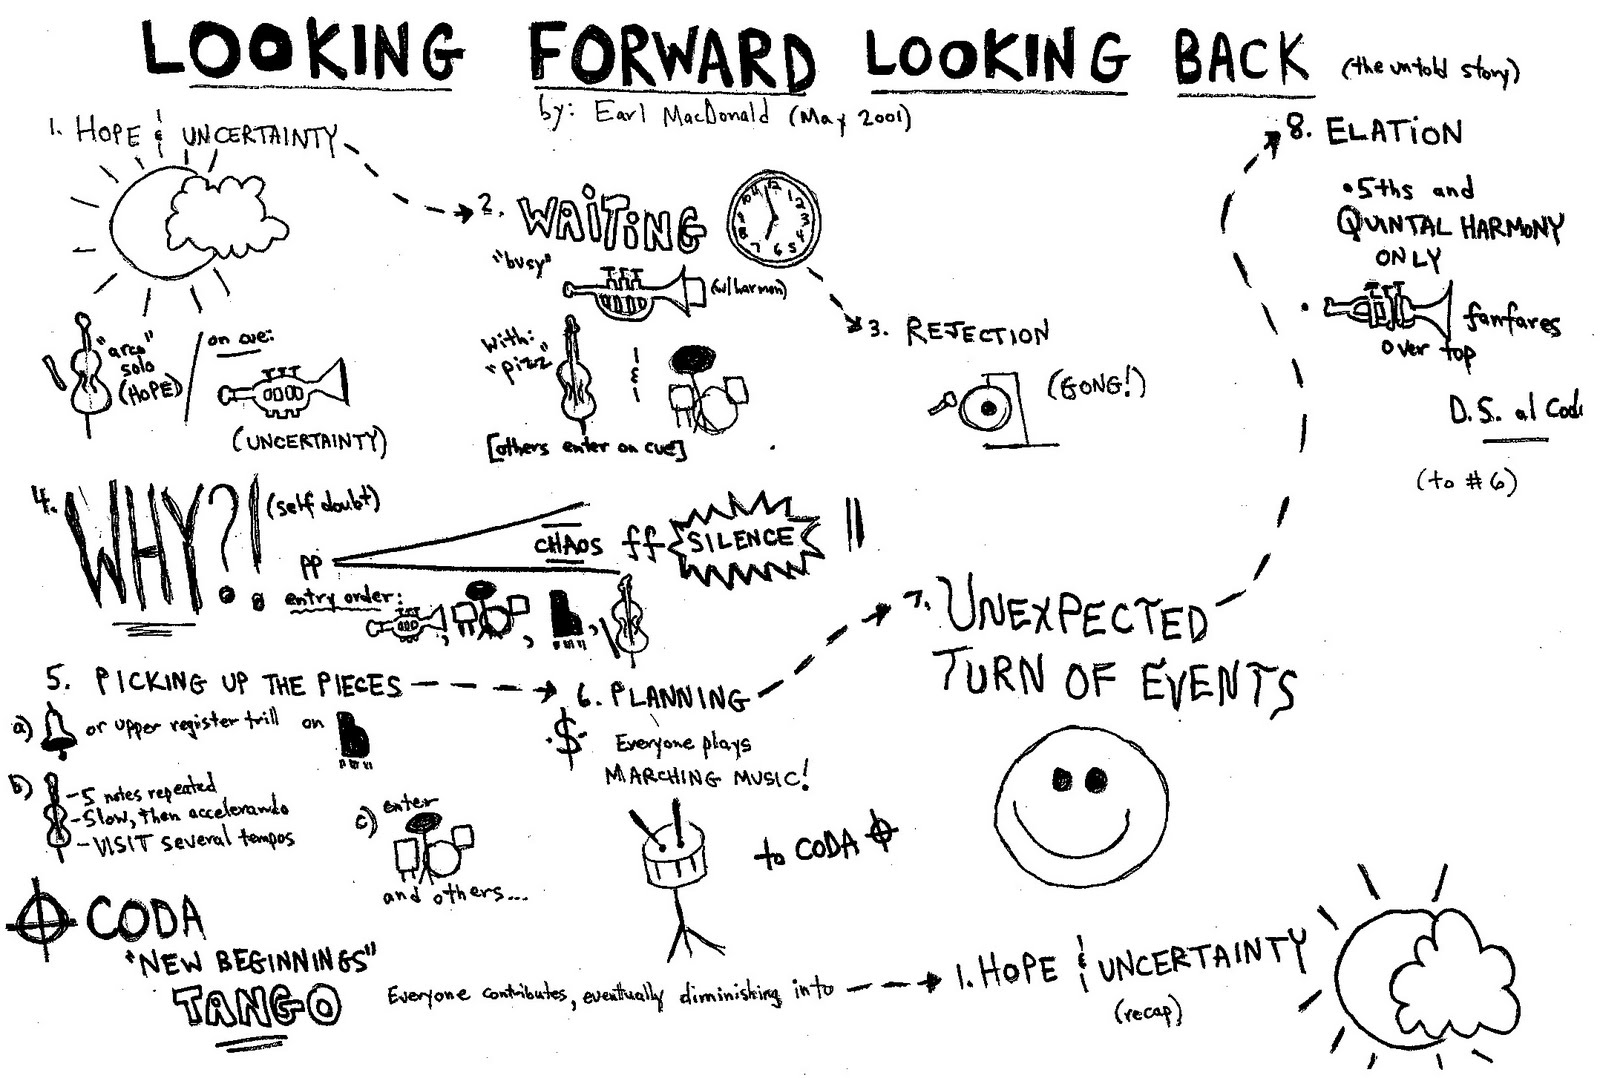 LOOKING FORWARD LOOKING BACK (the untold story)
by: Earl MacDonald (May 2001)
1. HOPE & UNCERTAINTY
"arco"
solo
(HOPE)
on cue:
(UNCERTAINTY)
2. WAITING
12 1 2 3 4 5 6 7 8 9 10 11
"busy"
(w/harmon)
with:
"pizz"
&
[others enter on cue]
3. REJECTION
(GONG!)
4. WHY?! (self doubt)
pp CHAOS ff SILENCE
entry order:
, , ,
5. PICKING UP THE PIECES
a) or upper register trill on
b) - 5 notes repeated
- Slow, then accelerando
- VISIT several tempos
c) enter
and others...
6. PLANNING
$ Everyone plays
MARCHING MUSIC!
to CODA
7. UNEXPECTED
TURN OF EVENTS
8. ELATION
• 5ths and
QUINTAL HARMONY
ONLY
• fanfares
over top
D.S. al Coda
(to #6)
CODA
"NEW BEGINNINGS"
TANGO
Everyone contributes, eventually diminishing into
1. HOPE & UNCERTAINTY
(recap)